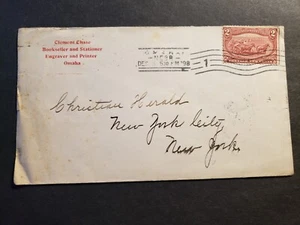 Clement Chase
Bookseller and Stationer
Engraver and Printer
Omaha
NEBR
'98
1
2
2
Christian Herald
New York City,
New York.